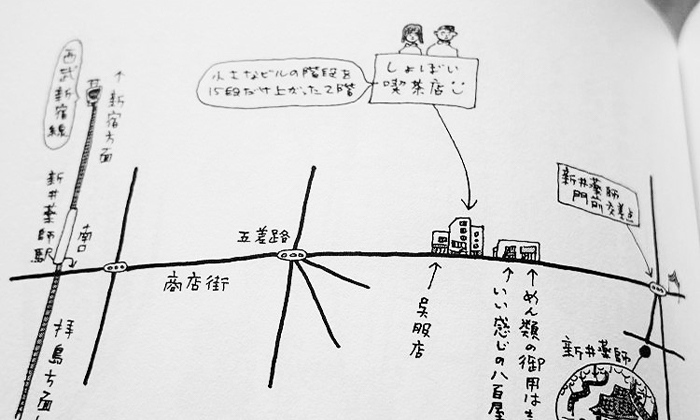 西武新宿線
↑新宿方面
小さなビルの階段を
15段だけ上がった2階
しょぼい
喫茶店
新井薬師
門前交差点
新井薬師駅
南口
五差路
商店街
呉服店
いい感じの八百屋
めん類の御用は
新井薬師
拝島方面